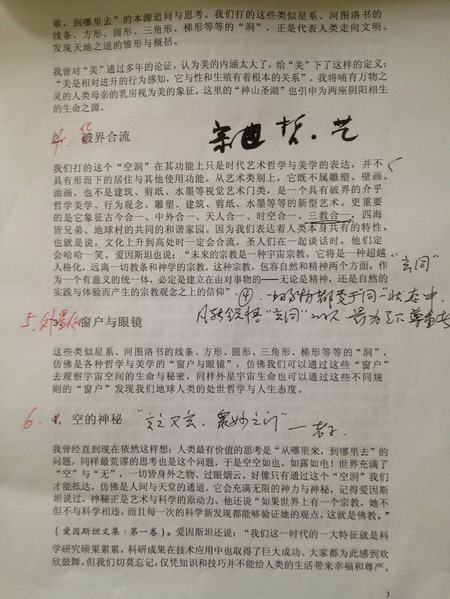 谁，到哪里去”的本源追问与思考。我们打的这些类似星系、河图洛书的
线条、方形、圆形、三角形、梯形等等的“洞”，正是代表人类走向文明、
发现天地之道的雏形与概括。
我曾对“美”通过多年的论证，认为美的内涵太大了。给“美”下了这样的定义：
“美是相对进升的行为感知，它与性和生殖有着根本的关系”。我将哺育万物之
灵的人类母亲的乳房视为美的象征。这里的“神山圣湖”也引申为两座阴阳相生
的生命之源。
破界合流
宗 哲、艺
我们打的这个“空洞”在其功能上只是时代艺术哲学与美学的表达，并不
具有形而下的居住与其他使用功能。从艺术类别上，它既不属雕塑、壁画、
油画，也不是建筑、剪纸、水墨等视觉艺术门类，是一个具有破界的介乎
哲学美学、行为观念、雕塑、建筑、剪纸、水墨等等的新型艺术。更重要
的是它象征古今合一、中外合一、天人合一、时空合一、三教合一，四海
皆兄弟、地球村的共同的和谐家园。因为我们表达着人类本身共有的特性，
也就是说，文化上升到高处时一定会合流，圣人们在一起谈话时，他们定
会哈哈一笑。爱因斯坦也说：“未来的宗教是一种宇宙宗教，它将是一种超越
人格化，远离一切教条和神学的宗教。这种宗教，包容自然和精神两个方面，作
为一个有意义的统一体，必定是建立在由对事物的——无论是精神，还是自然的
实践与体验而产生的宗教观念之上的信仰”
“玄同”
5. 窗户与眼镜
这些类似星系、河图洛书的线条、方形、圆形、三角形、梯形等等的“洞”，
仿佛是各种哲学与美学的“窗户与眼镜”，仿佛我们可以通过这些“窗户”
去观察宇宙空间的生命与秘密，同样外星宇宙生命也可以通过这些不同规
则的“窗户”发现我们地球人类的处世哲学与人生态度。
6. 4，空的神秘 “玄之又玄，众妙之门” 一老子
我曾经直到现在依然这样想：人类最有价值的思考是“从哪里来，到哪里去”的
问题，同样最荒谬的思考也是这个问题，于是空空如也、如露如电！世界充满了
“空”与“无”，一切皆身外之物、过眼烟云。好像只有通过这个“空洞”我们
才能抵达。仿佛是人间与天堂的通道。它会充满无限的神力与神秘，记得爱因斯
坦说过，神秘正是艺术与科学的原动力。他还说“如果世界上有一个宗教，她不
但不与科学相违，而且每一次的科学新发现都能够验证她的观点，这就是佛教。”
（爱因斯坦文集·第一卷）。爱因斯坦还说：“我们这一时代的一大特征就是科
学研究硕果累累，科研成果在技术应用中也取得了巨大成功。大家都为此感到欢
欣鼓舞。但我们切莫忘记，仅凭知识和技巧并不能给人类的生活带来幸福和尊严。
3